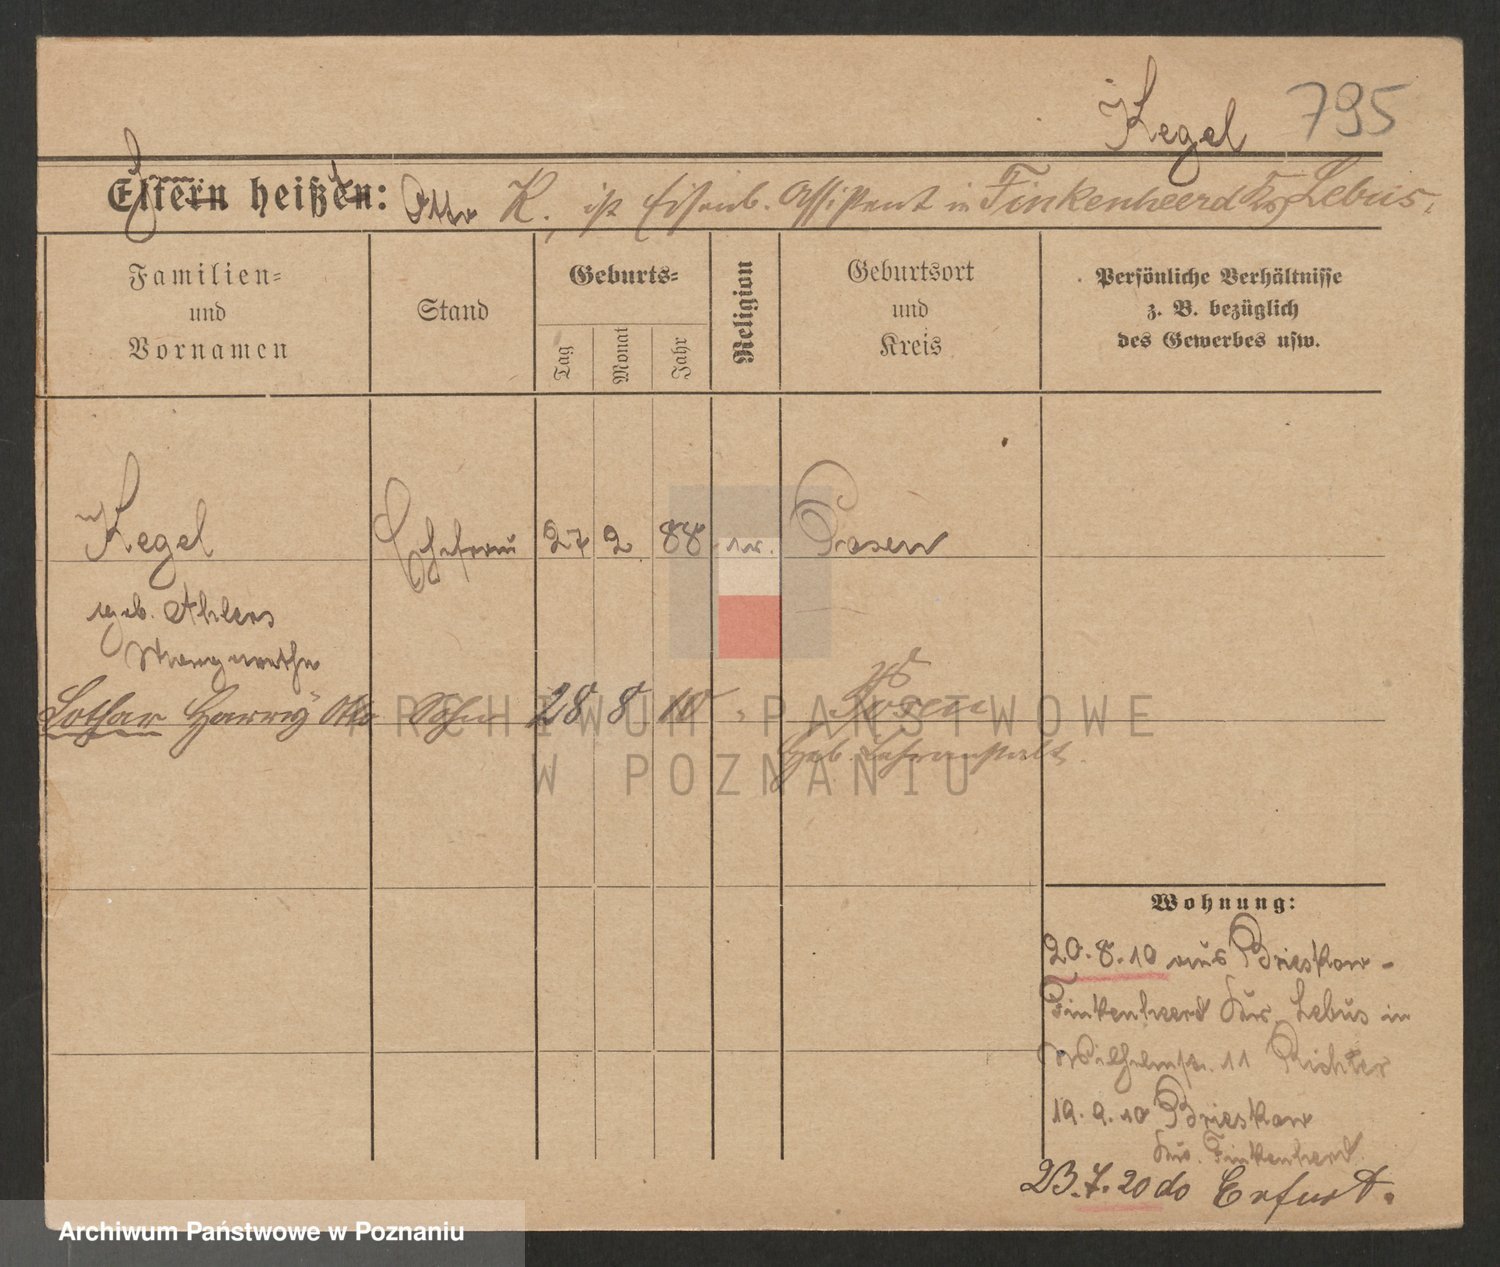 Kegel 795
Eltern heißen: Otto K. ist Eisenb. Assistent in Finkenheerd Krs Lebus.
Familien-
und
Vornamen
Stand
Geburts-
Tag
Monat
Jahr
Religion
Geburtsort
und
Kreis
Persönliche Verhältnisse
z. B. bezüglich
des Gewerbes usw.
Kegel Ehefrau 27 2 88 Posen
geb. Ahlers
Margarethe
Lothar Harry Otto Sohn 28 8 10 Posen
Heb. Lehranstalt
ARCHIWUM PAŃSTWOWE
W POZNANIU
Wohnung:
20.8.10 aus Brieskow-
Finkenheerd Lebus in
Wilhelmstr. 11 Richter
19.9.10 Brieskow
Finkenheerd
23.7.20 do Erfurt.
Archiwum Państwowe w Poznaniu